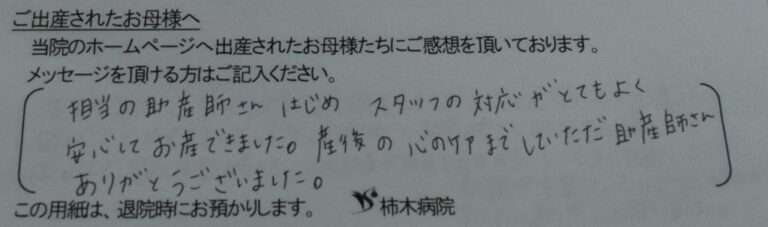 ご出産されたお母様へ
当院のホームページへ出産されたお母様たちにご感想を頂いております。
メッセージを頂ける方はご記入ください。
相当の助産師さん はじめ スタッフの対応がとてもよく
安心して お産できました。産後の心のケアまでしていただだ助産師さん
ありがとうございました。
この用紙は、退院時にお預かりします。 柿木病院